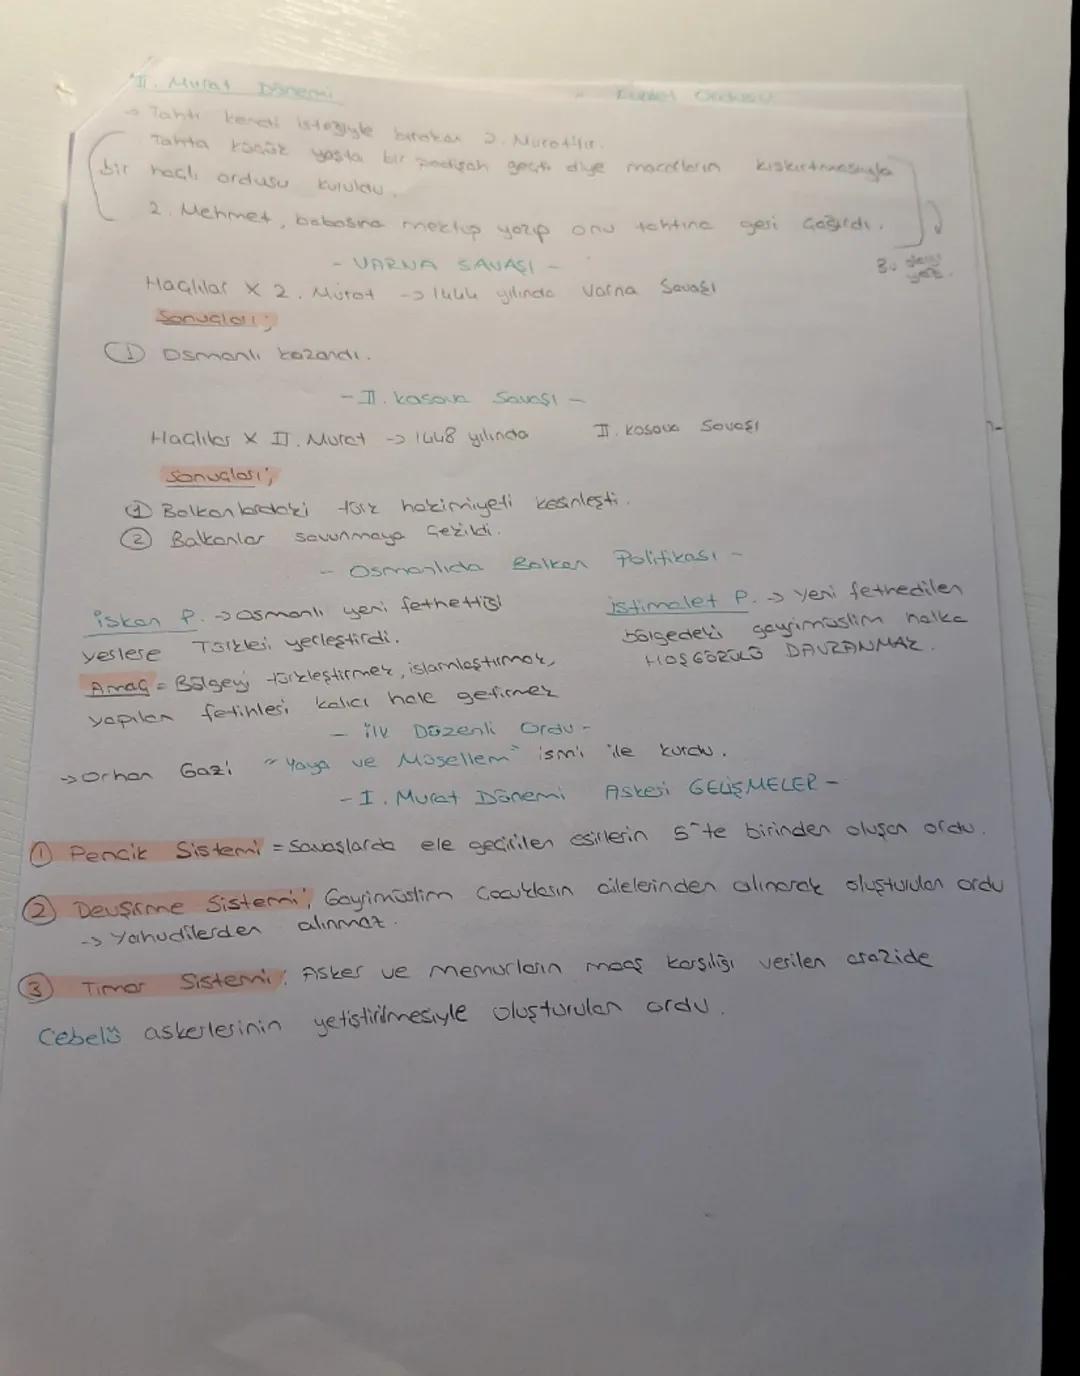 II. Murat Dönemi
→ Tahtı kendi isteğiyle bırakan 2. Murattır.
Tahta küçük yaşta bir padişah geçti diye macarların kışkırtmasıyla
bir haçlı ordusu kuruldu.
2. Mehmet, babasına mektup yazıp onu tahtına geri çağırdı.
Bu
- VARNA SAVAŞI -
Haçlılar X 2. Murat -> 1444 yılında Varna Savaşı
Sonuçları;
① Osmanlı kazandı.
- II. Kosova Savaşı -
Haçlılar X II. Murat -> 1448 yılında II. Kosova Savaşı
Sonuçları;
① Balkanlardaki türk hakimiyeti kesinleşti.
② Balkanlar savunmaya çekildi.
- Osmanlıda Balkan Politikası -
iskan P. -> Osmanlı yeni fethettiği
yerlere Türkleri yerleştirdi.
Amaç = Bölgeyi türkleştirmek, islamlaştırmak,
yapılan fetihleri kalıcı hale getirmek
istimalet P. -> Yeni fethedilen
bölgedeki gayrimüslim halka
HOŞGÖRÜLÜ DAVRANMAK.
- ilk Düzenli Ordu -
-> Orhan Gazi "Yaya ve Müsellem" ismi ile kurdu.
- I. Murat Dönemi Askeri GELİŞMELER -
① Pencik Sistemi = Savaşlarda ele geçirilen esirlerin 5'te birinden oluşan ordu.
② Devşirme Sistemi; Gayrimüslim Çocukların ailelerinden alınarak oluşturulan ordu
-> Yahudilerden alınmaz.
③ Tımar Sistemi; Asker ve memurların maaş karşılığı verilen arazide
Cebelü askerlerinin yetiştirilmesiyle oluşturulan ordu.